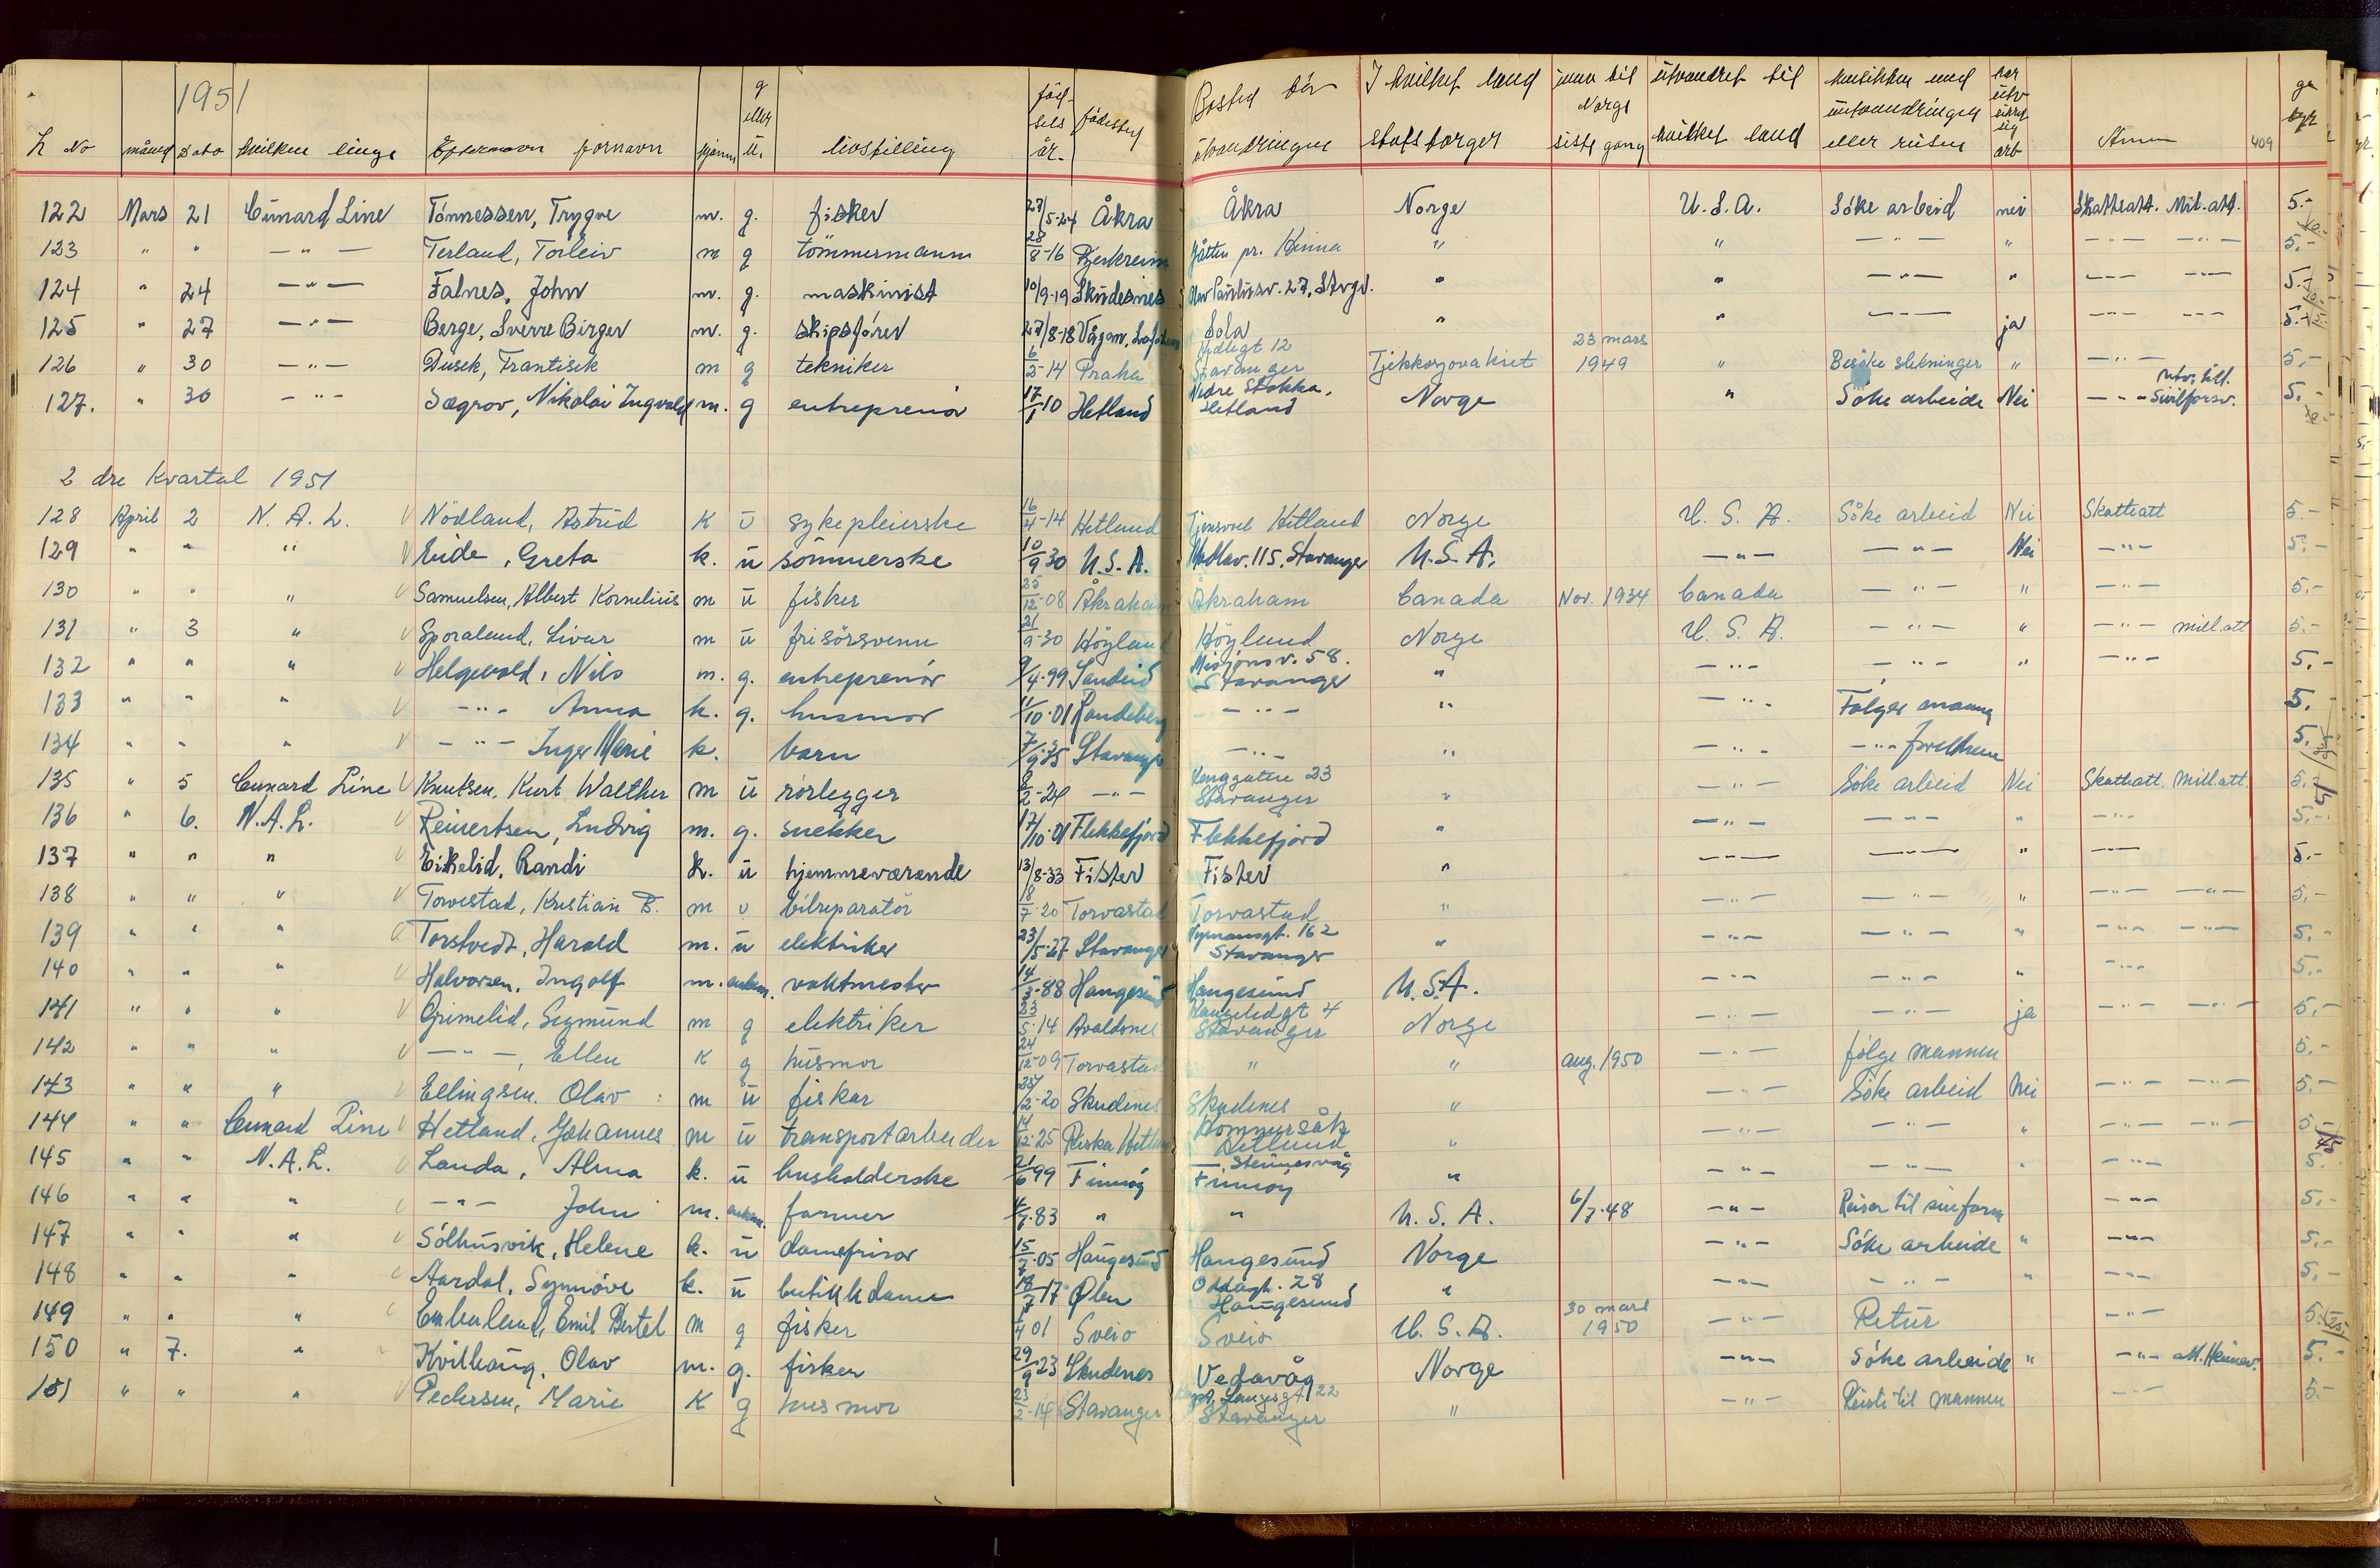 1951
L No måned Dato hvilken linje Efternavn fornavn kjønn g eller u. livsstilling föd-sels år. födested Bosted før utvandringen I hvilket land statsborger Norge siste gang utvandret til hvilket land eller reisen Anm 409 ge byr
122 Mars 21 Cunard Line Tönnessen, Trygve m. g. fisker 27/5-24 Åkra Åkra Norge U.S.A. Söke arbeid nei Skatteatt. Mil.att. 5.-
123 " " -"- Terland, Torleiv m g tömmermann 28/8-16 Bjerkreim Jåtten pr. Hinna " " -"- " -"- -"- 5.-
124 " 24 -"- Falnes, John m. g. maskinist 10/9-19 Skudesnes Olav Paulusv. 27, Stvgr. " " -"- " -"- -"- 5.-
125 " 27 -"- Berge, Sverre Birger m. g. skipsförer 27/8-18 Vågan, Sola " " -"- ja -"- -"- 5.-
126 " 30 -"- Dusek, Frantisek m g tekniker 6/2-14 Praha 12 Stavanger Tjekkoslovakiet 23 mars 1949 " Besöke slektninger " -"- 5.-
127. " 30 -"- Sægrov, Nikolai Ingvald m. g entreprenör 17/1-10 Hetland Nedre Stokka, Hetland Norge " Söke arbeide Nei -"- utv. till. Sivilforsv. 5.-
2 dre Kvartal 1951
128 April 2 N. A. L. Nödland, Astrid K u sykepleierske 16/4-14 Hetland Tjensvoll Hetland Norge U. S. A. Söke arbeid Nei Skatteatt 5.-
129 " " " Eide, Greta k. u sömmerske 10/9 30 U.S.A. Madlav. 115, Stavanger U.S.A. -"- -"- Nei -"- 5.-
130 " " " Samuelsen, Albert Kornelius m u fisker 25/12-08 Åkraham Åkraham Canada Nov. 1934 Canada -"- " -"- 5.-
131 " 3 " Sporaland, Sivar m u frisörsvenn 21/9-30 Höyland Höyland Norge U. S. A. -"- " -"- mill.att 5.-
132 " " " Helgevold, Nils m. g. entreprenör 9/4-99 Sandeid Misjonsv. 58. Stavanger " -"- -"- " -"- 5.-
133 " " " -"- Anna k. g. husmor 11/10-01 Randeberg -"- " -"- Følger mannen 5.-
134 " " " -"- Inger Marie k. barn 7/9-35 Stavanger -"- " -"- -"- foreldrene 5.-
135 " 5 Cunard Line Knutsen, Kurt Walther m u rörlegger 8/2-24 -"- 23 Stavanger " -"- Söke arbeid Nei Skatteatt. Mill.att. 5.-
136 " 6. N.A.L. Reinertsen, Ludvig m. g. snekker 17/10-01 Flekkefjord Flekkefjord " -"- -"- " -"- 5.-
137 " " " Eikelid, Randi k. u hjemmeværende 13/8-33 Fister Fister " -"- -"- " -"- 5.-
138 " " " Torvestad, Kristian B. m u bilreparatör 18/7-20 Torvastad Torvastad " -"- -"- " -"- -"- 5.-
139 " " " Torstvedt, Harald m. u elektriker 23/5-27 Stavanger Nymansgt. 162 Stavanger " -"- -"- " -"- -"- 5.-
140 " " " Halvorsen, Ingolf m. enkem. vaktmester 14/3-88 Haugesund Haugesund U.S.A. -"- -"- " -"- 5.-
141 " " " Grimelid, Sigmund m g elektriker 23/5-14 Avaldsnes 4 Stavanger Norge -"- -"- ja -"- -"- 5.-
142 " " " -"-, Ellen K g husmor 24/12-09 Torvastad " " aug. 1950 -"- følge mannen 5.-
143 " " " Ellingsen. Olav m u fisker 2-20 Skudenes Skudenes " -"- Söke arbeid Nei -"- -"- 5.-
144 " " Cunard Line Hetland, Johannes m u transportarbeider 14/12-25 Riska Hetland Hommersåk Hetland " -"- -"- " -"- -"- 5.-
145 " " N.A.L. Landa, Alma k. u husholderske 21/6 99 Finnöy Steinnesvåg Finnöy " -"- -"- " -"- 5.-
146 " " " -"- John m. enkem. farmer 4/7-83 " " U.S.A. 6/7-48 -"- Reiser til sin farm -"- 5.-
147 " " " Sólhusvik, Helene k. u damefrisør 15/7-05 Haugesund Haugesund Norge -"- Söke arbeide " -"- 5.-
148 " " " Aardal, Synnöve k. u butikkdame 18/7-17 Ølen Oddagt. 28 Haugesund " -"- -"- " -"- 5.-
149 " " " Emberland, Emil Bertel m g fisker 4 01 Sveio Sveio U.S.A. 30 mars 1950 -"- Retur -"- 5.-
150 " 7. " Kvilhaug, Olav m. g. fisker 29/9 23 Skudenes Vedavåg Norge -"- Söke arbeide " -"- att. Heimev. 5.-
151 " " " Pedersen, Marie K g husmor 23/2-14 Stavanger Langesgt. 22 Stavanger " -"- Reiste til mannen -"- 5.-